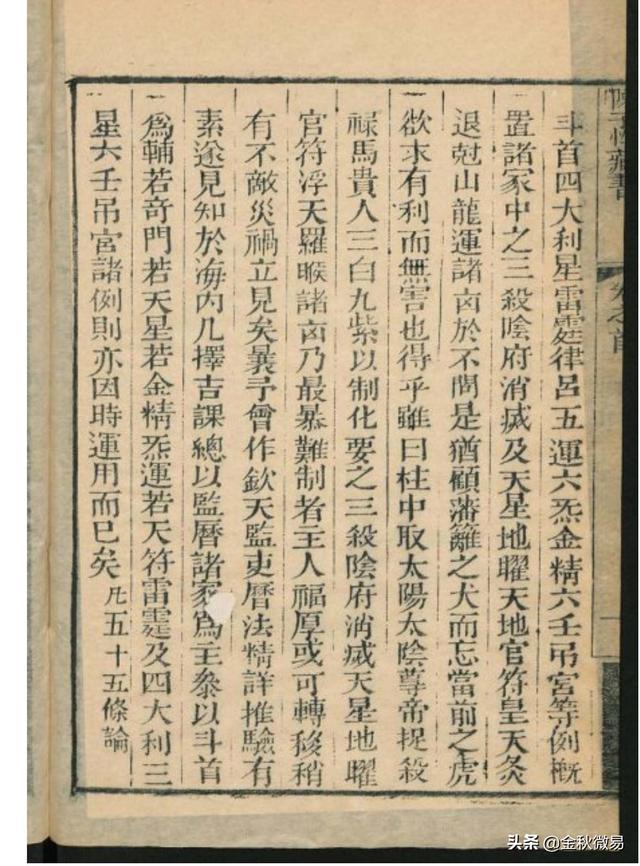 斗首四大利星雷霆律呂五運六炁金精六壬吊宮等例概
置諸冢中之三殺陰府消滅及天星地曜天地官符皇天灸
退尅山龍運諸凶於不問是猶顧藩籬之犬而忘當前之虎
欲求有利而無害也得乎雖曰柱中取太陽太陰尊帝捉殺
祿馬貴人三白九紫以制化要之三殺陰府消滅天星地曜
官符浮天羅㬋諸凶乃最暴難制者主人福厚或可轉移稍
有不敵災禍立見矣曩予曾作欽天監吏曆法精詳推驗有
素遂見知於海內凡擇吉課總以監曆諸家為主叅以斗首
為輔若奇門若天星若金精炁運若天符雷霆及四大利三
星六壬吊宮諸例則亦因時運用而已矣 凡五十五條論
藏書
卷之首
头条 @金秋微易